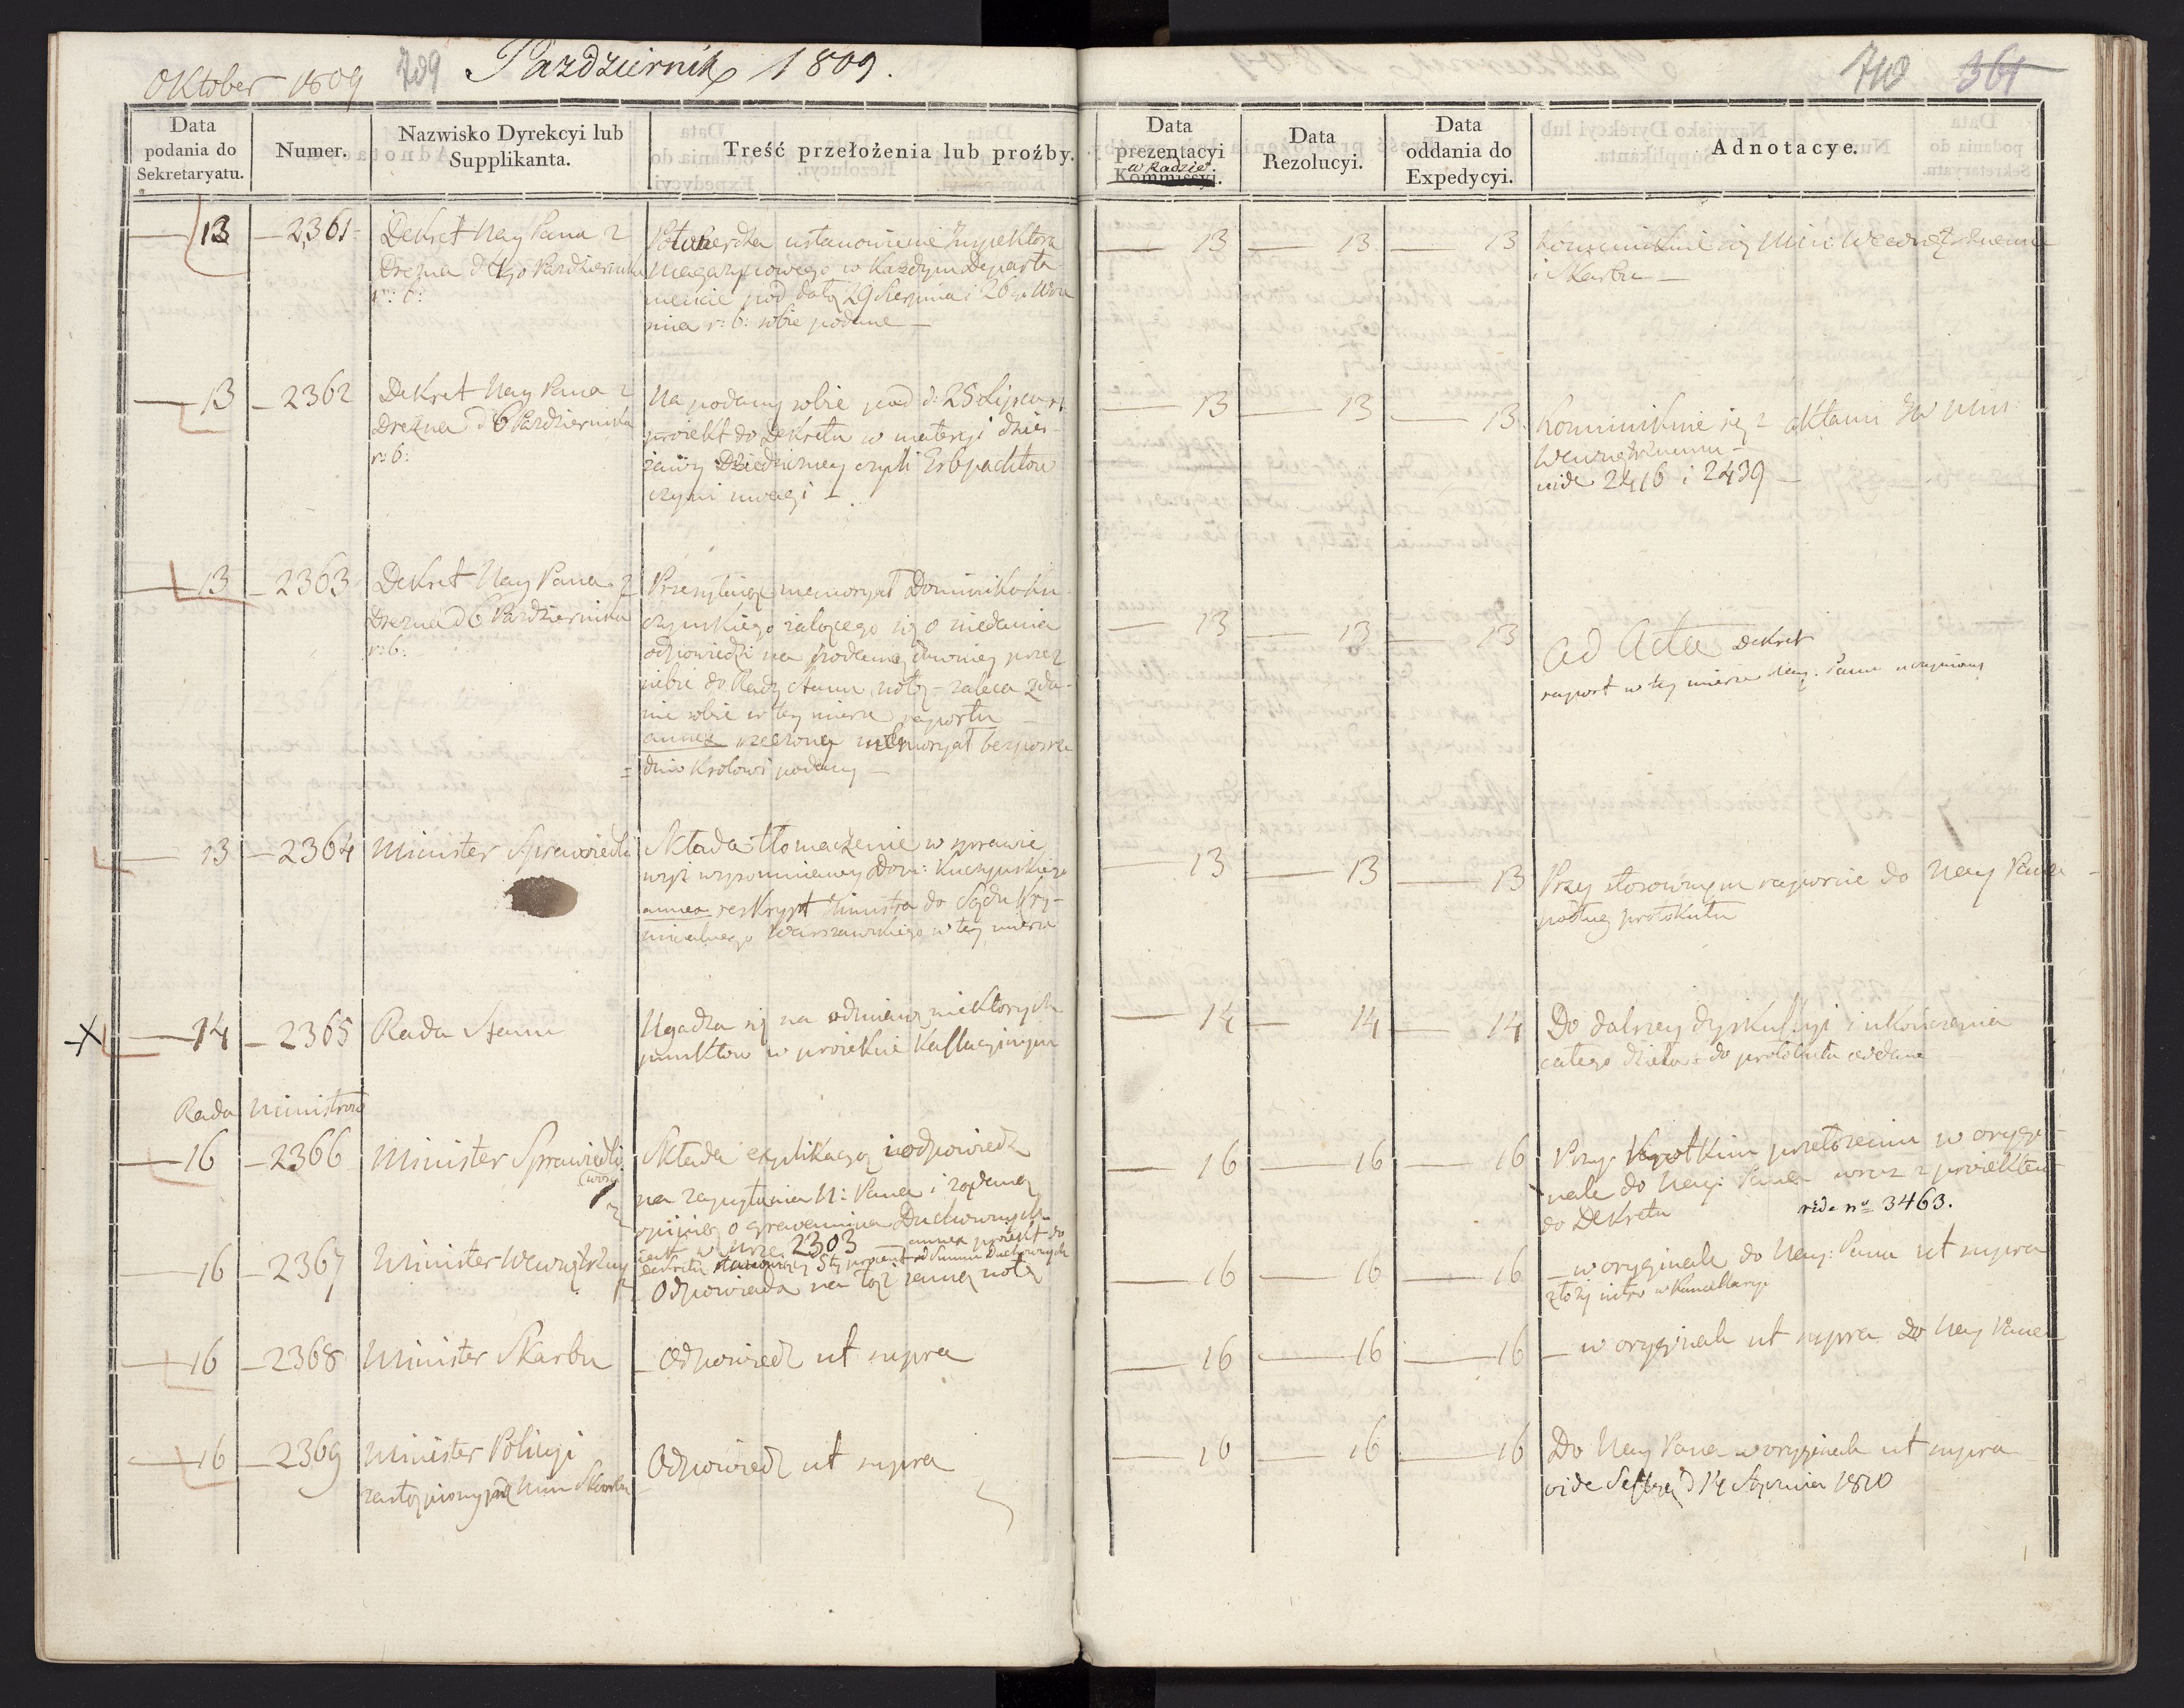 Oktober 1809 709 Pazdziernik 1809.
710 361
Data podania do Sekretaryatu.
Numer.
Nazwisko Dyrekcyi lub Supplikanta.
Treść przełożenia lub proźby.
Data prezentacyi w Radzie Kommissyi.
Data Rezolucyi.
Data oddania do Expedycyi.
Adnotacye.
13 2361
Dekret Nay Pana z
Drezna d Pazdziernika
r: b:
Potwierdza ustanowienie Inspektora
Magazynowego w Kazdym Departa
mencie pod datą 29 Sierpnia i 26go Wrze
nia r: b: sobie podane
13 13 13
Kommunikuie się Min: Wewnętrznemu
i Skarbu
13 2362
Dekret Nay Pana z
Drezna d 6 Pazdziernika
r: b:
Na podany sobie pod d: 25 Lipca r:
proiekt do Dekretu w materyi dzier-
zawy Dziedziczney czyli Erbpachtow
czyni uwagi
13 13 13
Kommunikuie się z aktami Min
Wewnętrznemu
vide 2416 i 2439
13 2363
Dekret Nay Pana z
Drezna d 6 Pazdziernika
r: b:
Przesyłaiąc memoryał Dominika Ku
czynskiego żalącego się o niedanie
odpowiedzi na podaną dawniey przez
siebie do Rady Stanu notę - zaleca zda-
nie sobie w tey mierze raportu
annex rzeczony memoryał bezposre
dnio Krolowi podany
13 13 13
ad Acta Dekret
raport w tey mierze Nay: Panu uczyniony
13 2364
Minister Sprawiedli
Składa tłomaczenie w sprawie
wyż wspomnianey Dom: Kuczynskiego
annex reskrypt Ministra do Sądu Kry-
minalnego Warszawskiego w tey mierze
13 13 13
Przy stosownym raporcie do Nay Pana
podług protokułu
14 2365
Rada Stanu
Ugadza się na odmianę niektorych
punktow w proiekcie Kassacyinym
14 14 14
Do dalszey dyskussyi i ukończenia
całego dzieła - do protokułu oddane
Rada Ministrow
16 2366
Minister Sprawiedli
wosci
Składa explikacyą i odpowiedz
na zapytania N: Pana i żądaną
opinią o gravamina Duchownych
iak w Nrze 2303 annex proiekt do
dekretu procent od Summ Duchownych
16 16 16
Przy krotkim przełożeniu w orygi-
nale do Nay: Pana wraz z proiektem
do Dekretu
vide no 3463.
16 2367
Minister Wewnętrzny
Odpowiada na toż samą notę
16 16 16
w oryginale do Nay: Pana ut supra
w Kancellaryi
16 2368
Minister Skarbu
Odpowiedz ut supra
16 16 16
w oryginale ut supra do Nay Pana
16 2369
Minister Policyi
zastąpiony przez Min Skarbu
Odpowiedz ut supra
16 16 16
Do Nay Pana w oryginale ut supra
vide Sessyą d 14 Stycznia 1810